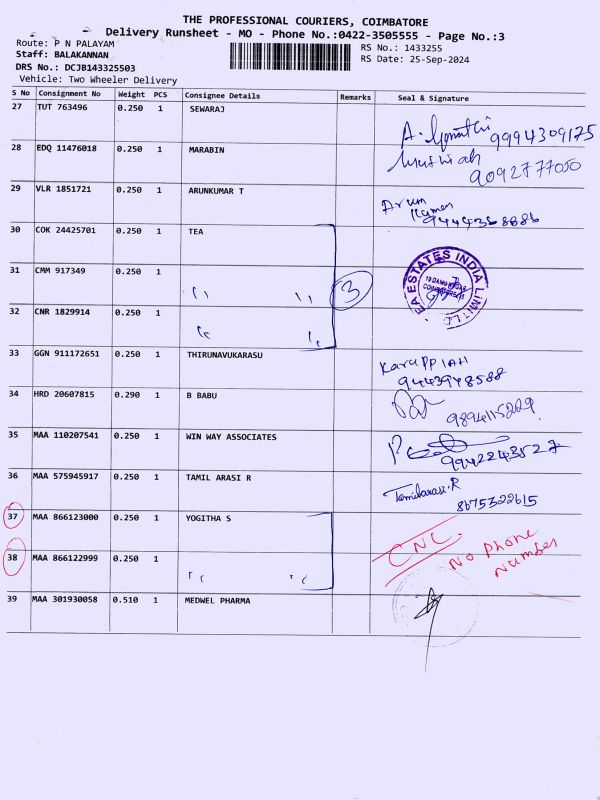 THE PROFESSIONAL COURIERS, COIMBATORE
Delivery Runsheet - MO - Phone No.:0422-3505555 - Page No.:3
Route: P N PALAYAM
Staff: BALAKANNAN
DRS No.: DCJB143325503
Vehicle: Two Wheeler Delivery
RS No.: 1433255
RS Date: 25-Sep-2024
S No Consignment No Weight PCS Consignee Details Remarks Seal & Signature
27 TUT 763496 0.250 1 SEWARAJ
9994309175
28 EDQ 11476018 0.250 1 MARABIN
9092777050
29 VLR 1851721 0.250 1 ARUNKUMAR T Arun Kumar
30 COK 24425701 0.250 1 TEA
31 CMM 917349 0.250 1 " " 3
EA ESTATES INDIA LIMITED
32 CNR 1829914 0.250 1 " "
33 GGN 911172651 0.250 1 THIRUNAVUKARASU KaruPPIAH
9443948588
34 HRD 20607815 0.290 1 B BABU
9894115229
35 MAA 110207541 0.250 1 WIN WAY ASSOCIATES
9942243527
36 MAA 575945917 0.250 1 TAMIL ARASI R Tamilarasi.R
8675322615
37 MAA 866123000 0.250 1 YOGITHA S CNC.
No Phone Number
38 MAA 866122999 0.250 1 " "
39 MAA 301930058 0.510 1 MEDWEL PHARMA